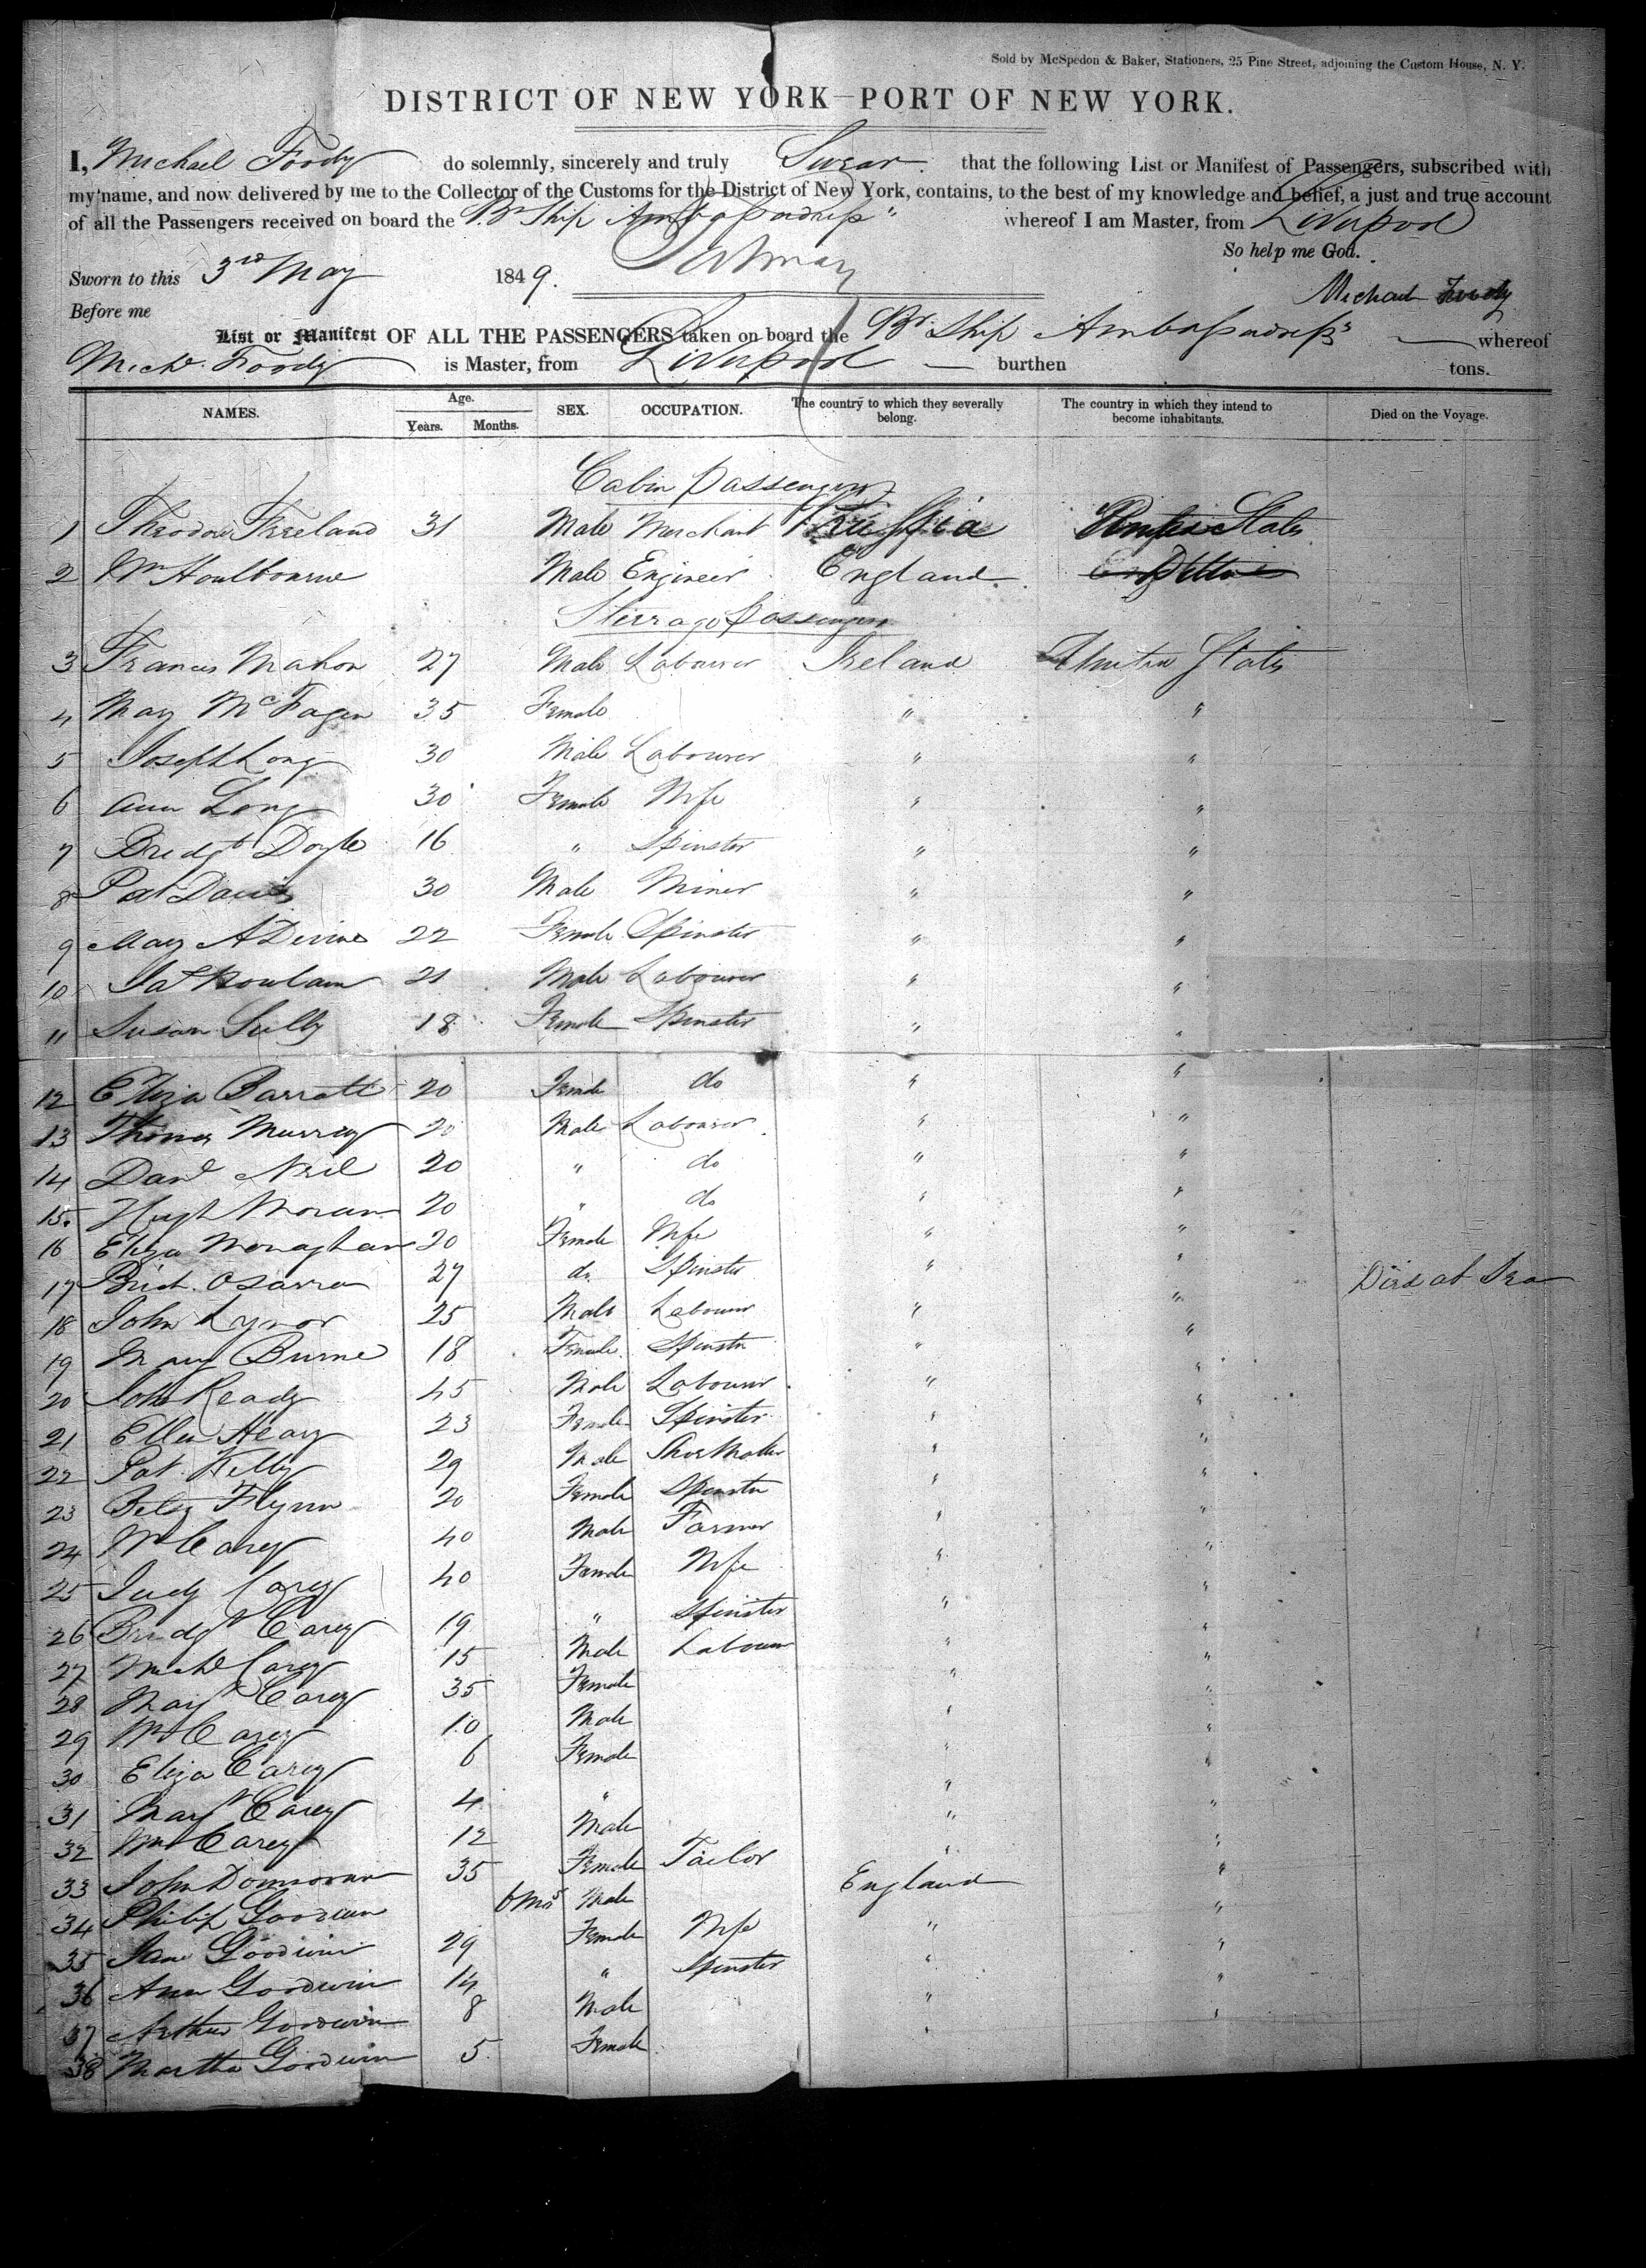 Sold by McSpedon & Baker, Stationers, 25 Pine Street, adjoining the Custom House, N. Y.
DISTRICT OF NEW YORK—PORT OF NEW YORK.
I, Michael Foody do solemnly, sincerely and truly Swear that the following List or Manifest of Passengers, subscribed with
my name, and now delivered by me to the Collector of the Customs for the District of New York, contains, to the best of my knowledge and belief, a just and true account
of all the Passengers received on board the Br Ship Ambassadress" whereof I am Master, from Liverpool
So help me God.
Sworn to this 3rd May 1849.
Michael Foody
Before me
List or Manifest OF ALL THE PASSENGERS taken on board the Br. Ship Ambassadress whereof
Michl. Foody is Master, from Liverpool — burthen tons.
NAMES. Age. Years. Months. SEX. OCCUPATION. The country to which they severally belong. The country in which they intend to become inhabitants. Died on the Voyage.
Cabin Passengers
1 Theodore Freeland 31 Male Merchant States
2 Wm Houlbourne Male Engineer England Ditto
Steerage Passengers
3 Francis Mahon 27 Male Labourer Ireland United States
4 Mary McFagen 35 Female " "
5 Joseph Long 30 Male Labourer " "
6 Ann Long 30 Female Wife " "
7 Bridgt Doyle 16 " Spinster " "
8 Pat Davis 30 Male Miner " "
9 Mary A Devine 22 Female Spinster " "
10 21 Male Labourer " "
11 Susan 18 Female Spinster " "
12 Eliza Barratt 20 Female do " "
13 Thomas Murray 20 Male Labourer " "
14 Danl Neil 20 " do " "
15. Hugh Moran 20 " do " "
16 Eliza Monaghan 20 Female Wife " "
17 Brid. 27 do Spinster " " Died at Sea
18 John Lynor 25 Male Labourer " "
19 Mary Burne 18 Female Spinster " "
20 John Ready 45 Male Labourer " "
21 Ellen Heary 23 Female Spinster " "
22 Pat Kelly 29 Male Shoe Maker " "
23 Betsy Flynn 20 Female Spinster " "
24 Wm Carey 40 Male Farmer " "
25 Judy Carey 40 Female Wife " "
26 Bridgt Carey 19 " Spinster " "
27 Michl Carey 15 Male Labourer " "
28 Margt Carey 35 Female " "
29 Wm Carey 10 Male " "
30 Eliza Carey 6 Female " "
31 Margt Carey 4 " " "
32 Wm Carey 12 Male " "
33 John Donnovan 35 Female Tailor " "
34 Philip Goodwin 6 Mos Male England "
35 Jane Goodwin 29 Female Wife " "
36 Ann Goodwin 14 " Spinster " "
37 Arthur Goodwin 8 Male " "
38 Martha Goodwin 5 Female " "